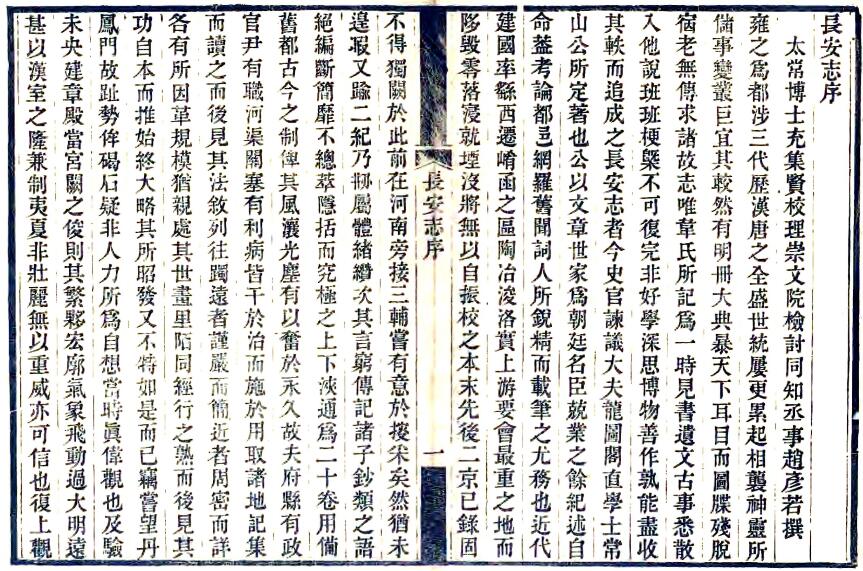 長安志序
太常博士充集賢校理崇文院檢討同知丞事趙彥若撰
雍之爲都涉三代歷漢唐之全盛世統屢更累起相襲神靈所
儲事變叢巨宜其較然有明冊大典暴天下耳目而圖牒殘脫
宿老無傳求諸故志唯韋氏所記爲一時見書遺文古事悉散
入他說班班梗槩不可復完非好學深思博物善作孰能盡收
其軼而追成之長安志者今史官諫議大夫龍圖閣直學士常
山公所定著也公以文章世家爲朝廷名臣兢業之餘紀述自
命葢考論都邑網羅舊聞詞人所銳精而載筆之尤務也近代
建國率繇西遷崤函之區陶冶浚洛實上游要會最重之地而
陊毀零落寖就堙沒將無以自振校之本末先後二京已錄固
長安志序
一
不得獨闕於此前在河南旁接三輔嘗有意於搜采矣然猶未
遑暇又踰二紀乃刱屬體緒纘次其言窮傳記諸子鈔類之語
絕編斷簡靡不總萃隱括而究極之上下浹通爲二十卷用備
舊都古今之制俾其風瀼光塵有以奮於永久故夫府縣有政
官尹有職河渠關塞有利病皆干於治而施於用取諸地記集
而讀之而後見其法敘列往躅遠者謹嚴而簡近者周密而詳
各有所因革規模猶親處其世畫里陌同經行之熟而後見其
功自本而推始終大略其所昭發又不特如是而已竊嘗望丹
鳳門故趾勢侔碣石疑非人力所爲自想當時眞偉觀也及驗
未央建章殿當宮闕之俊則其繁夥宏廓氣象飛動過大明遠
甚以漢室之隆兼制夷夏非壯麗無以重威亦可信也復上觀